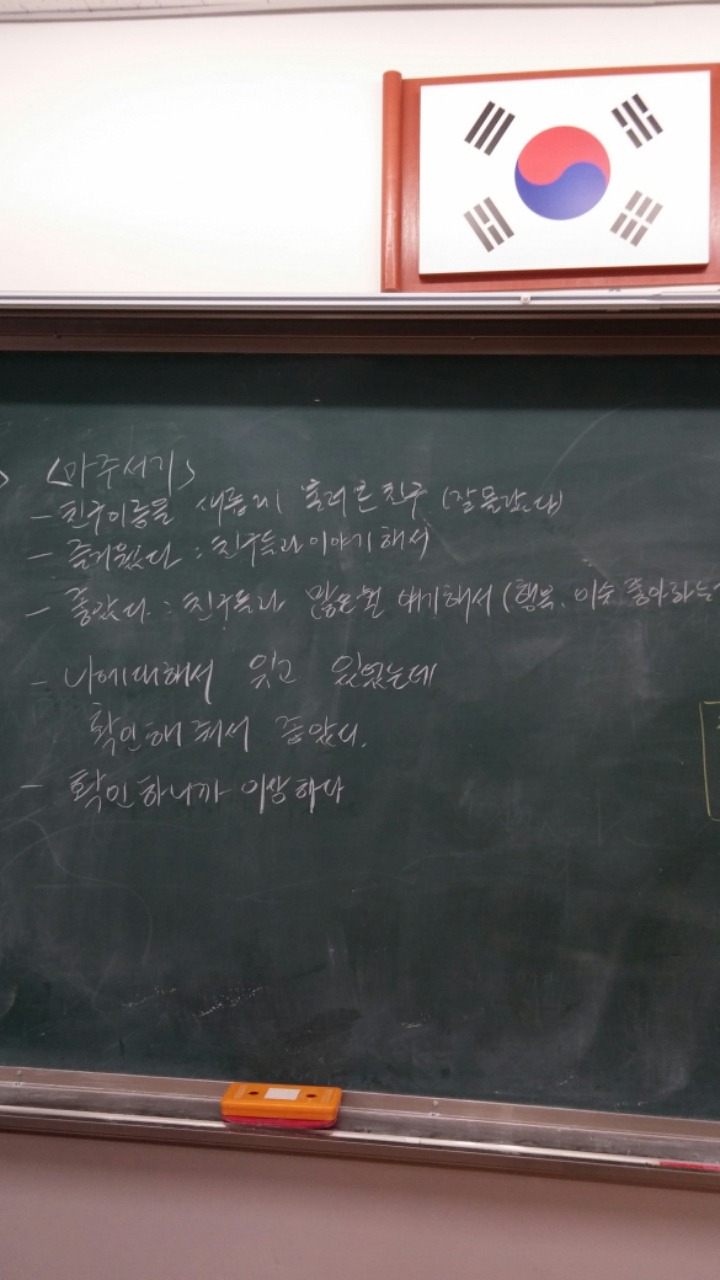 <마주서기>
- 친구이름을 새롭게 불러 본 친구 (잘 몰랐다)
- 즐거웠다 : 친구들과 이야기해서
- 좋았다. : 친구들과 많은 걸 얘기해서 (행복, 미소 좋아하는
- 나에 대해서 잊고 있었는데
확인해 줘서 좋았다.
- 확인하니까 이상하다